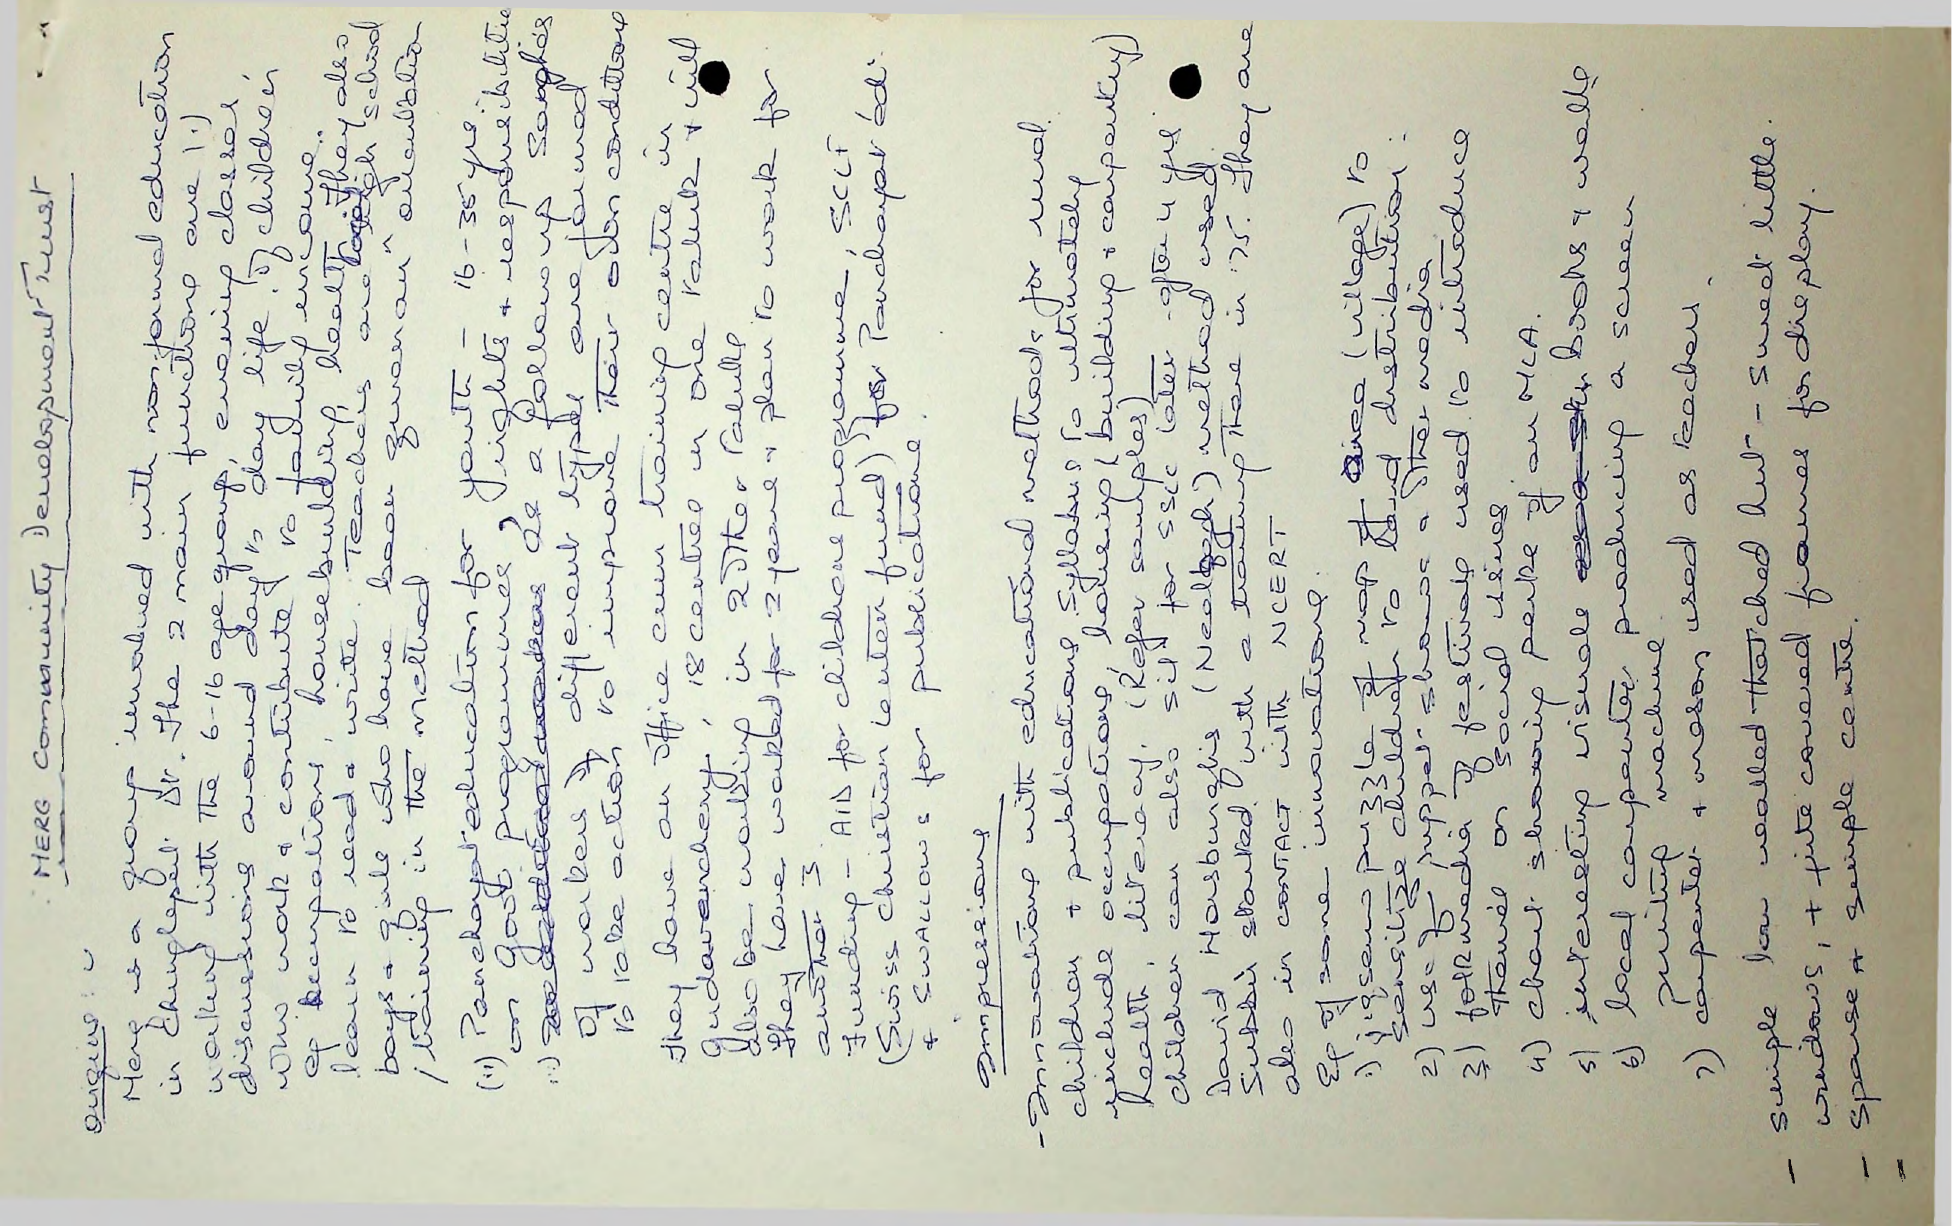 MERG Community Development Trust
Origins :
Merg is a group involved with non-formal education
in Chinglepet Dt. The 2 main functions are 1.)
working with the 6-16 age group, evening classes
discussions around day to day life. of children
who work & contribute to family income.
eg occupations, housebuilding, health They also
learn to read & write. Teachers are high school
boys & girls who have been given an orientation
/ training in the method
(ii) Panchayat education for youth - 16-35 yrs
on Govt programmes, rights & responsibilities
ii) As a followup Sanghas
of workers of different types are formed
to take action to improve their own conditions
They have an office cum training centre in
Guduvenchery, 18 centres in one taluk & will
also be working in 2 other taluks
They have worked for 2 years & plan to work for
another 3
Funding - AID for childrens programme, SCLT
(Swiss Christian Lenten fund) for Panchayat ed.
& SWALLOWS for publications.
Impressions
- Innovations with educational methods for rural
children & publications. Syllabus to ultimately
include occupations, housing (building & carpentry)
health, literacy. (Refer samples)
Children can also sit for SSLC later - after 4 yrs
David Horsburghs (Neelbagh) method used.
Subbu started with a training there in '75. They are
also in contact with NCERT
Eg of some innovations :
1) jigsaw puzzle of map of area (village) to
sensitize children to land distribution :
2) use of puppet shows & other media
3) folk media of festivals used to introduce
themes on social issues
4) chart showing perks of an MLA.
5) interesting visuals books & walls
6) local carpenter producing a screen
printing machine.
7) carpenter & mason used as teachers.
- Simple low walled thatched hut - suned little
windows, + jute covered frames for display.
- Sparse & simple centre.